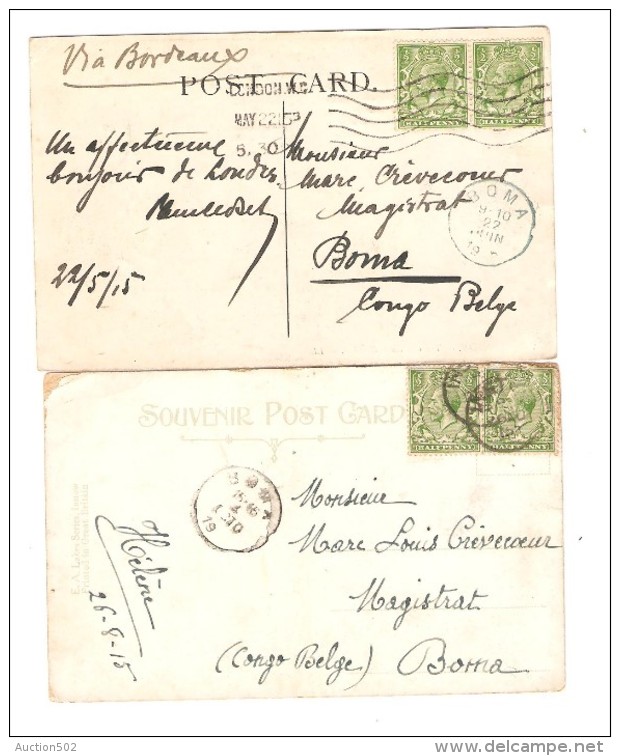 Via Bordeaux
POST CARD.
LONDON.W.C
MAY 22 15
5.30
HALFPENNY
HALFPENNY
Un affectueux
bonjour de Londres
22/5/15
Monsieur
Marc Crèvecoeur
Magistrat
Boma
Congo Belge
BOMA
9-10
22
JUIN
19
SOUVENIR POST CARD
HALFPENNY
HALFPENNY
BOMA
15-16
4
19
E. A. Ladey Series, Jersey
Hélène
26-8-15
Monsieur
Marc Louis Crèvecœur
Magistrat
(Congo Belge) Boma
Auction502